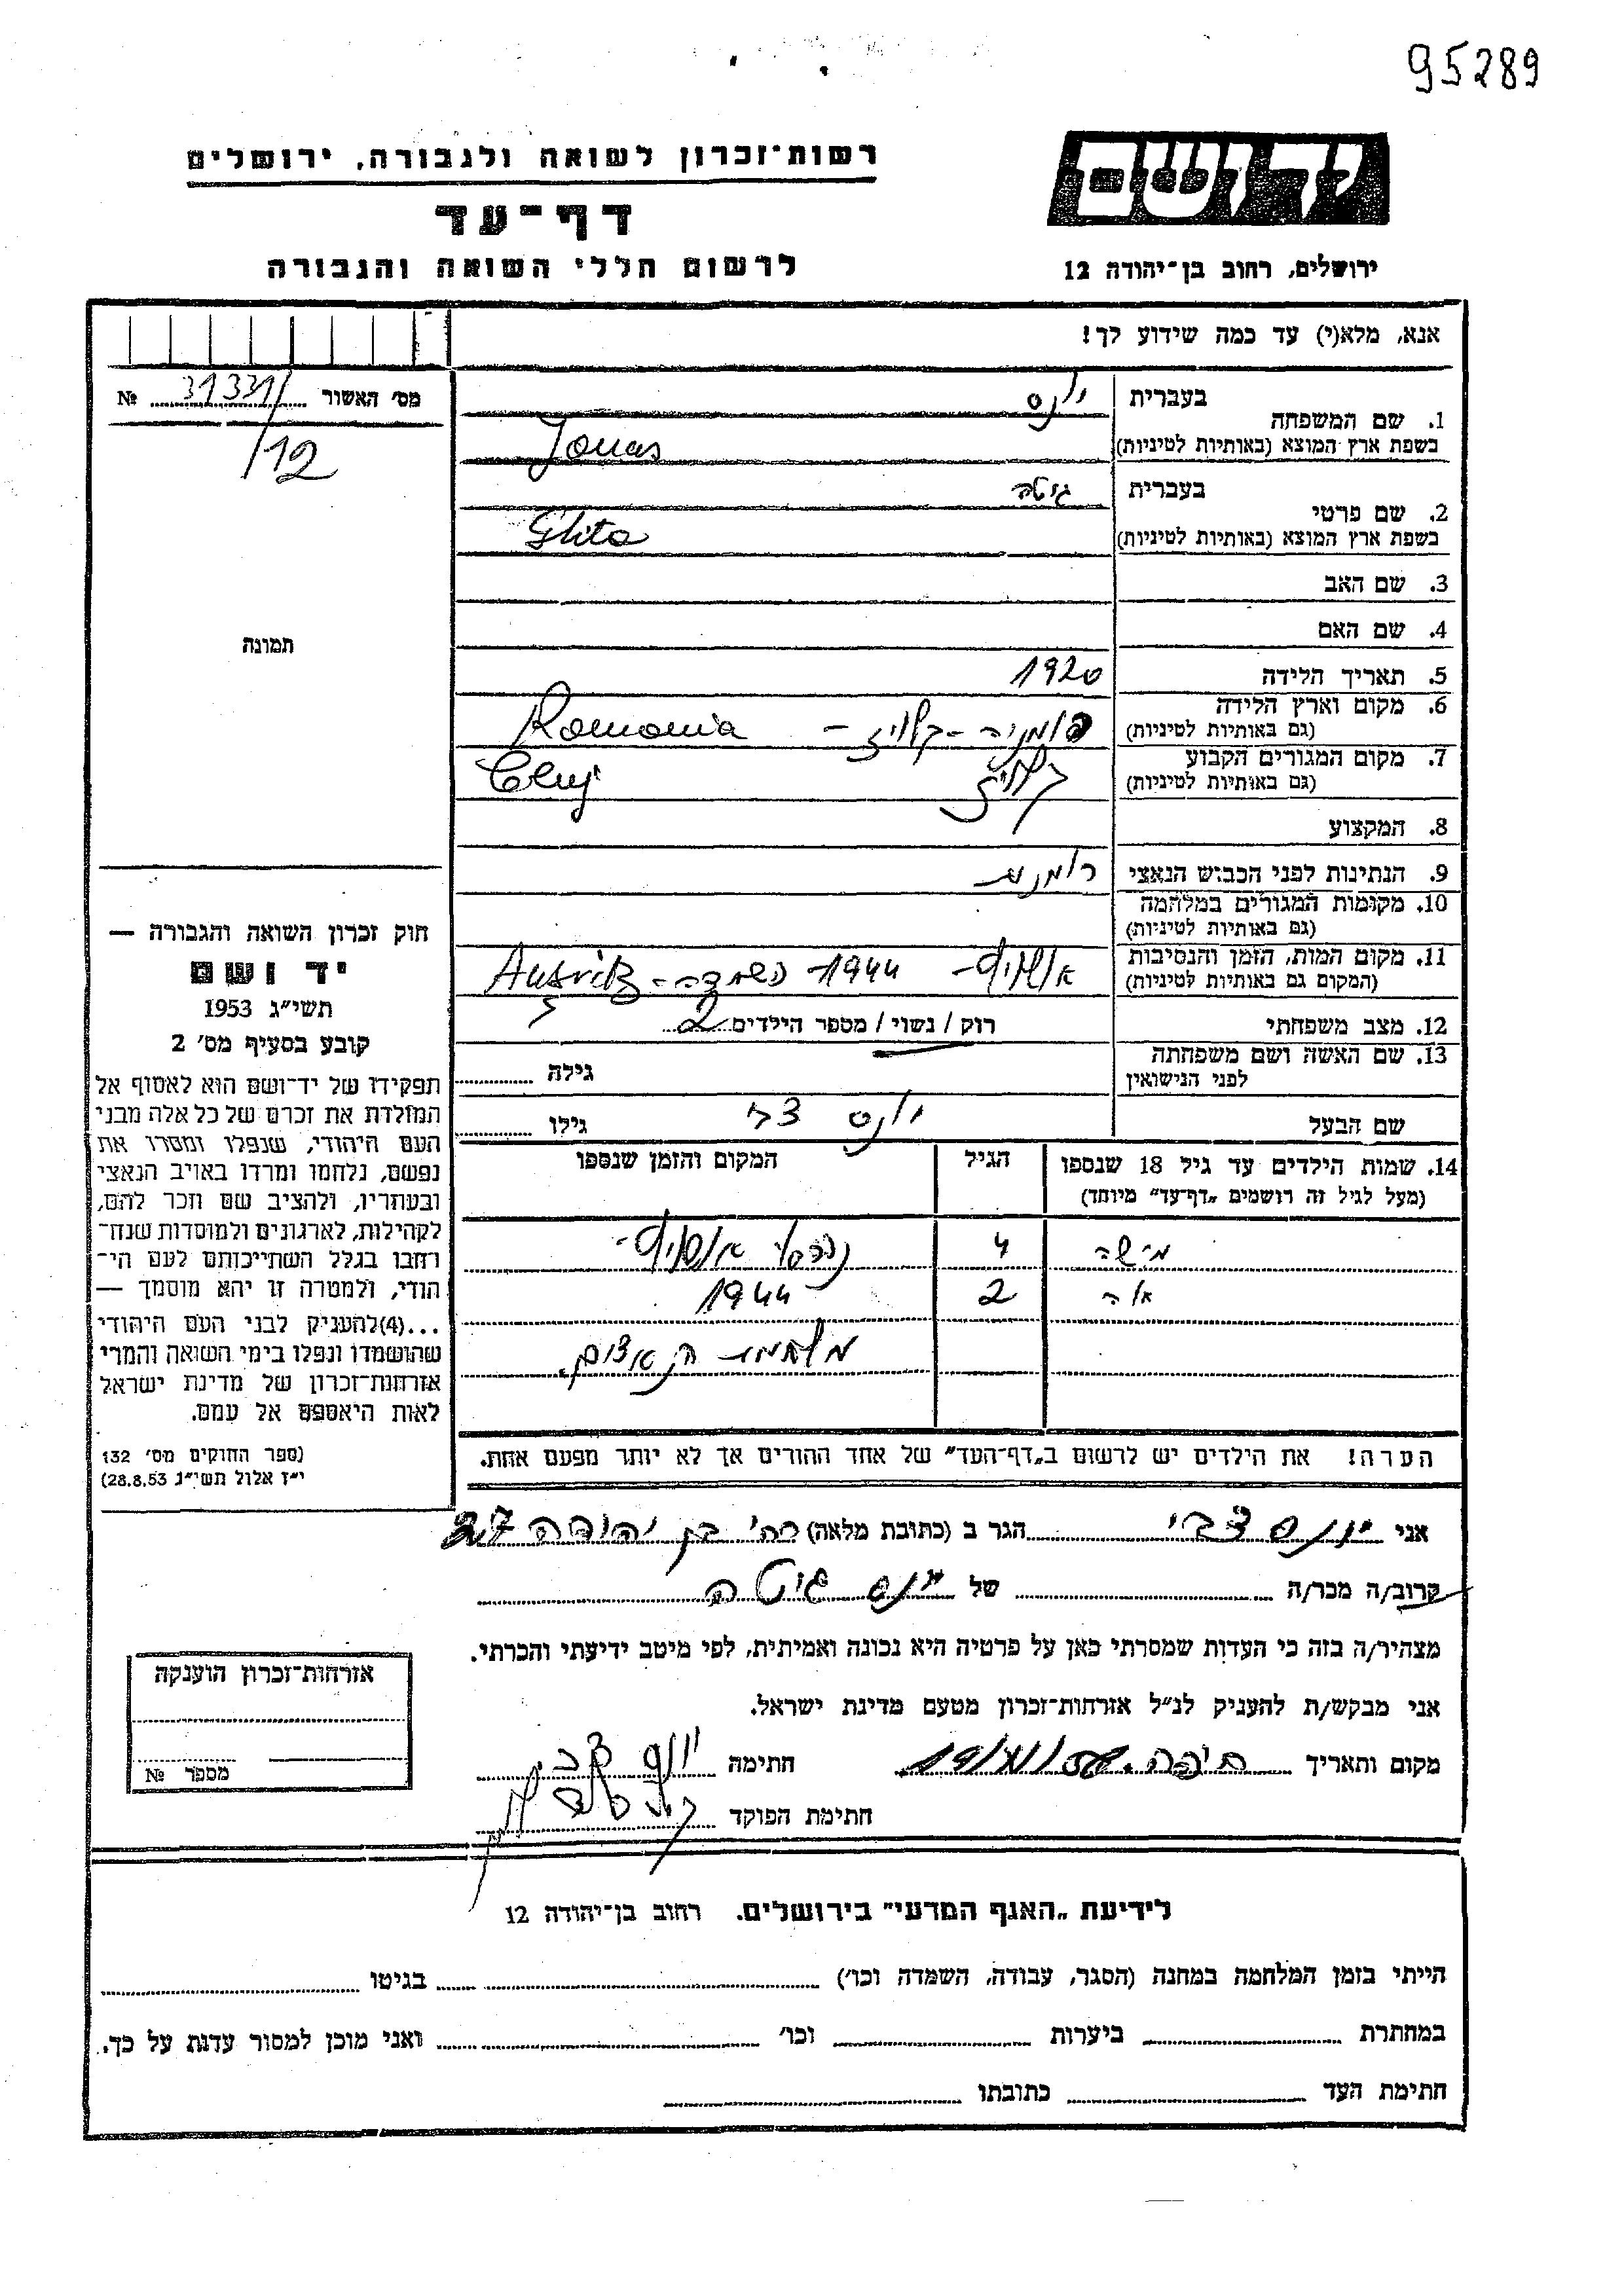 95289
יד ושם
רשות־זכרון לשואה ולגבורה, ירושלים
דף־עד
לרשום חללי השואה והגבורה
ירושלים, רחוב בן־יהודה 12
אנא, מלא(י) עד כמה שידוע לך!
מס' האשור 31331/ №
/12
תמונה
1. שם המשפחה
בעברית יונס
בשפת ארץ המוצא (באותיות לטיניות) Jonas
2. שם פרטי
בעברית גיטה
בשפת ארץ המוצא (באותיות לטיניות) Ghita
3. שם האב
4. שם האם
5. תאריך הלידה 1920
6. מקום וארץ הלידה
(גם באותיות לטיניות) רומניה - קלוז' - Romania
7. מקום המגורים הקבוע
(גם באותיות לטיניות) קלוז' Cluj
8. המקצוע
9. הנתינות לפני הכבוש הנאצי רומנית
10. מקומות המגורים במלחמה
(גם באותיות לטיניות)
11. מקום המות, הזמן והנסיבות
(המקום גם באותיות לטיניות) אושויץ - 1944 נשמדה -
12. מצב משפחתי רוק / נשוי / מספר הילדים 2
13. שם האשה ושם משפחתה
לפני הנישואין גילה
שם הבעל יונס צבי גילו
14. שמות הילדים עד גיל 18 שנספו
(מעל לגיל זה רושמים „דף־עד" מיוחד)
הגיל
המקום והזמן שנספו
מישה 4 אושויץ -
2 1944
הערה! את הילדים יש לרשום ב„דף־העד" של אחד ההורים אך לא יותר מפעם אחת.
חוק זכרון השואה והגבורה —
יד ושם
תשי"ג 1953
קובע בסעיף מס' 2
תפקידו של יד־ושם הוא לאסוף אל
המולדת את זכרם של כל אלה מבני
העם היהודי, שנפלו ומסרו את
נפשם, נלחמו ומרדו באויב הנאצי
ובעוזריו, ולהציב שם וזכר להם,
לקהילות, לארגונים ולמוסדות שנח־
רחבו בגלל השתייכותם לעם הי־
הודי, ולמטרה זו יהא מוסמך —
...(4)להעניק לבני העם היהודי
שהושמדו ונפלו בימי השואה והמרי
אזרחות־זכרון של מדינת ישראל
לאות היאספם אל עמם.
(ספר החוקים מס' 132
י"ז אלול תשי"ג 28.8.53)
אני יונס צבי הגר ב (כתובת מלאה) רח' בן יהודה
קרוב/ה מכר/ה של יונס גיטה
מצהיר/ה בזה כי העדות שמסרתי כאן על פרטיה היא נכונה ואמיתית, לפי מיטב ידיעתי והכרתי.
אני מבקש/ת להעניק לנ"ל אזרחות־זכרון מטעם מדינת ישראל.
מקום ותאריך חיפה חתימה יונס צבי
חתימת הפוקד
אזרחות־זכרון הוענקה
מספר №
לידיעת „האגף המדעי" בירושלים. רחוב בן־יהודה 12
הייתי בזמן המלחמה במחנה (הסגר, עבודה, השמדה וכו') בגיטו
במחתרת ביערות וכו' ואני מוכן למסור עדות על כך.
חתימת העד כתובתו